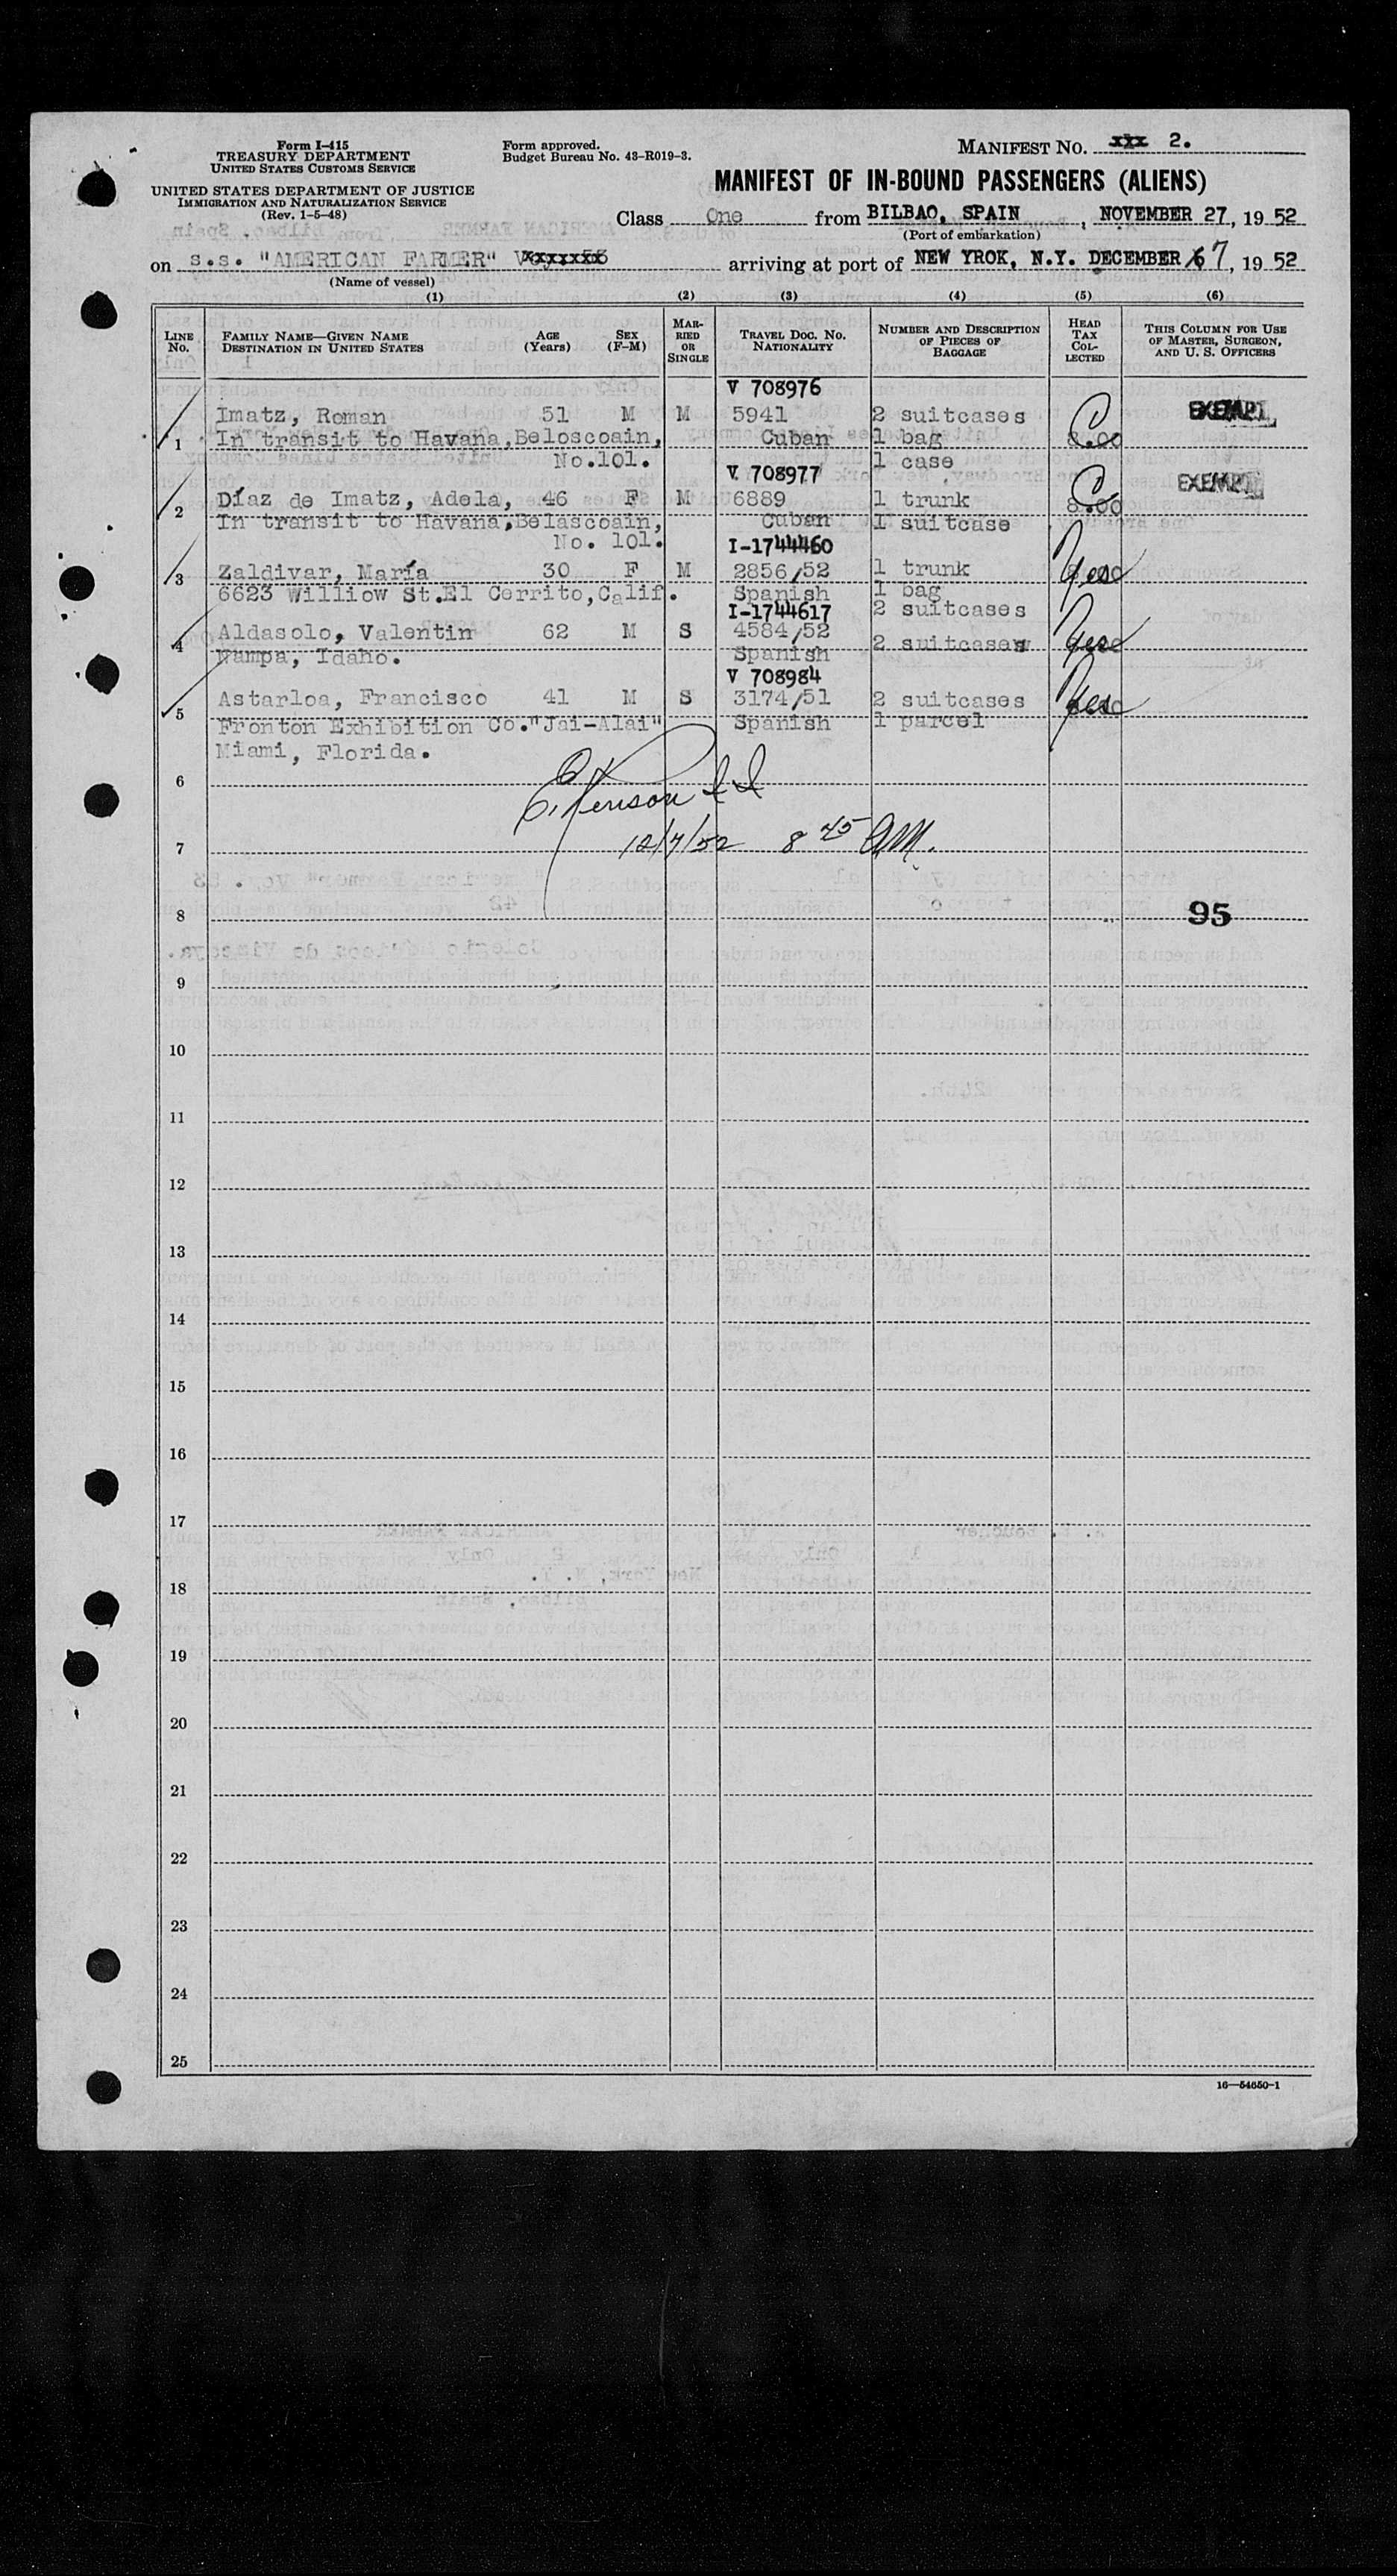 Form I-415
TREASURY DEPARTMENT
UNITED STATES CUSTOMS SERVICE
UNITED STATES DEPARTMENT OF JUSTICE
IMMIGRATION AND NATURALIZATION SERVICE
(Rev. 1-5-48)
Form approved.
Budget Bureau No. 43-R019-3.
MANIFEST NO. xxx 2.
MANIFEST OF IN-BOUND PASSENGERS (ALIENS)
Class One from BILBAO, SPAIN, NOVEMBER 27, 1952
(Port of embarkation)
on s.s. "AMERICAN FARMER" arriving at port of NEW YROK, N.Y. DECEMBER 7, 1952
(Name of vessel)
(1) (2) (3) (4) (5) (6)
LINE No. FAMILY NAME—GIVEN NAME DESTINATION IN UNITED STATES AGE (Years) SEX (F-M) MARRIED OR SINGLE TRAVEL DOC. NO. NATIONALITY NUMBER AND DESCRIPTION OF PIECES OF BAGGAGE HEAD TAX COLLECTED THIS COLUMN FOR USE OF MASTER, SURGEON, AND U. S. OFFICERS
V 708976
Imatz, Roman 51 M M 5941 2 suitcases EXEMPT
1 In transit to Havana,Beloscoain, Cuban 1 bag 8.00
No.101. 1 case
V 708977
Díaz de Imatz, Adela, 46 F M 6889 1 trunk EXEMPT
2 In transit to Havana,Belascoain, Cuban 1 suitcase 8.00
No. 101.
I-1744460
3 Zaldivar, María 30 F M 2856/52 1 trunk
6623 Williow St.El Cerrito,Calif. Spanish 1 bag
I-1744617 2 suitcases
4 Aldasolo, Valentin 62 M S 4584/52 2 suitcases
Nampa, Idaho. Spanish
V 708984
Astarloa, Francisco 41 M S 3174/51 2 suitcases
5 Fronton Exhibition Co."Jai-Alai" Spanish 1 parcel
Miami, Florida.
6
12/7/52 8 45 AM.
7
8 95
9
10
11
12
13
14
15
16
17
18
19
20
21
22
23
24
25
16—54650-1